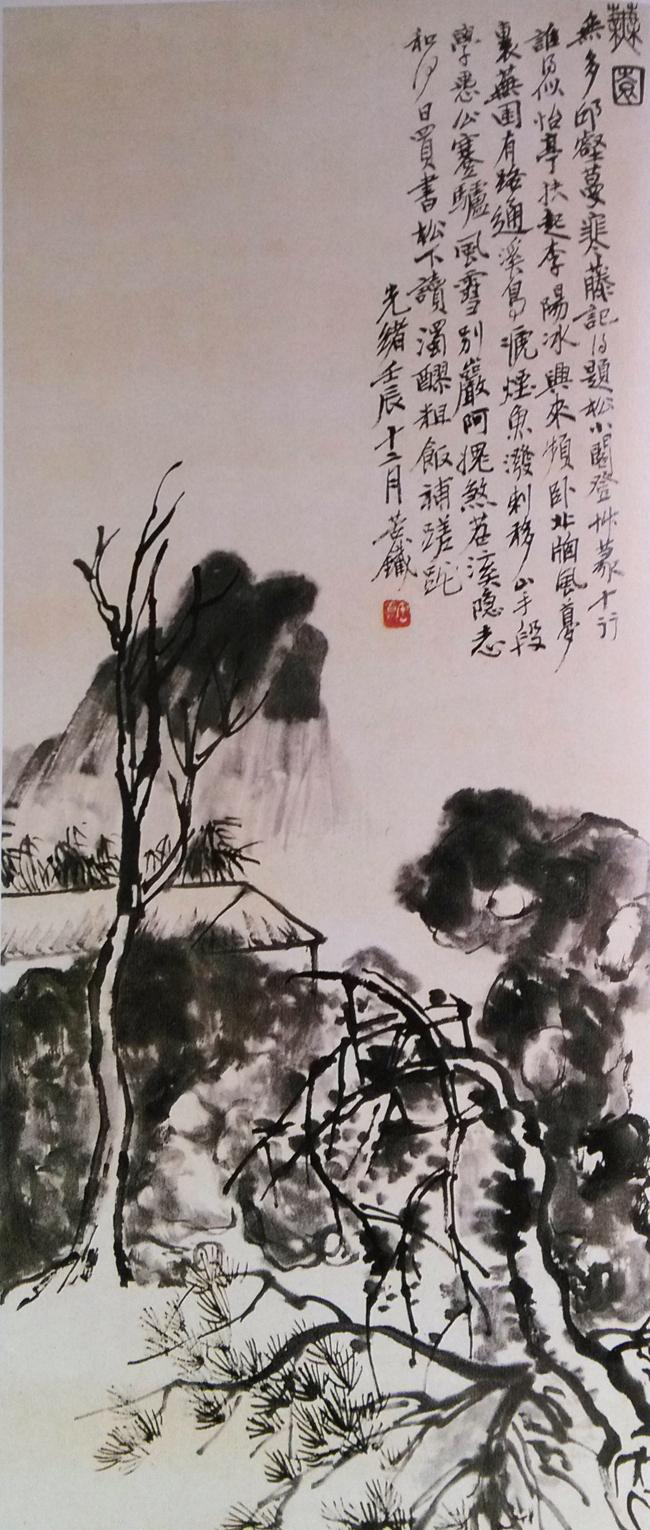 蕪園
無多邱壑蔓寒藤記得題松小閣登艸篆十行
誰得似怡亭扶起李陽冰興來頻臥北牕風夢
裏蕪園有路通溪鳥號煙魚潑剌移山手段
學愚公蹇驢風雪別巖阿愧煞苕溪隱志
和何日買書松下讀濁醪粗飯補蹉跎
光緒壬辰十二月苦鐵